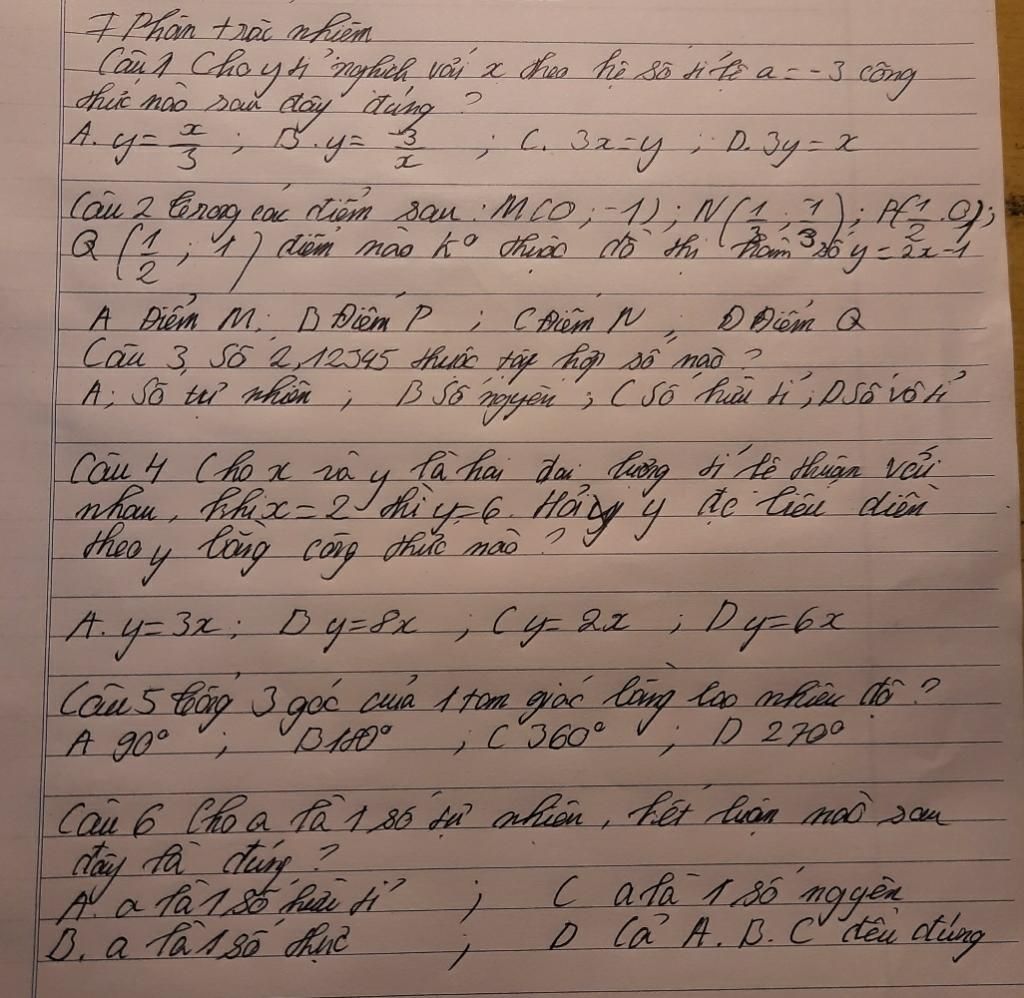 I Phần trắc nhiệm
Câu 1 Cho y tỉ nghịch với x theo hệ số tỉ lệ a = -3 công
thức nào sau đây đúng ?
A. y = x/3 ; B. y = -3/x ; C. 3x = y ; D. 3y = x
Câu 2 Trong các điểm sau : M(0 ; -1) ; N(1/3 ; -1/3) ; P(1/2 . 0) ;
Q (1/2 ; 1) điểm nào k° thuộc đồ thị hàm số y = 2x - 1
A Điểm M ; B Điểm P ; C Điểm N ; D Điểm Q
Câu 3, Số 2,12345 thuộc tập hợp số nào ?
A ; Số tự nhiên ; B Số nguyên ; C Số hữu tỉ ; D Số vô tỉ
Câu 4 Cho x và y là hai đại lượng tỉ lệ thuận với
nhau, khi x = 2 thì y = 6. Hỏi y đc biểu diễn
theo y bằng công thức nào ?
A. y = 3x ; B y = 8x ; C y = 2x ; D y = 6x
Câu 5 Tổng 3 góc của 1 tam giác bằng bao nhiêu độ ?
A 90° ; B 180° ; C 360° ; D 270°
Câu 6 Cho a là 1 số tự nhiên, kết luận nào sau
đây là đúng ?
A. a là 1 số hữu tỉ ; C a là 1 số ngyên
B. a là 1 số thực ; D Cả A. B. C đều đúng